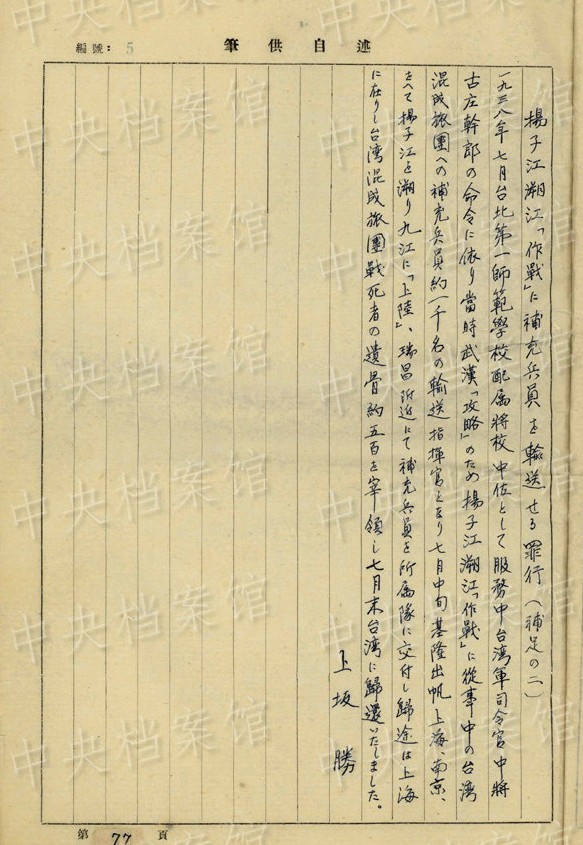 編號: 5
筆供自述
揚子江溯江「作戰」に補充兵員を輸送せる罪行(補足の二)
一九三八年七月台北第一師範學校配属將校中佐として服務中台湾軍司令官中將
古庄幹郎の命令に依り當時武漢「攻略」のため揚子江溯江「作戰」に從事中の台湾
混成旅團への補充兵員約一千名の輸送指揮官となり七月中旬基隆出帆上海、南京、
をへて揚子江を溯り九江に「上陸」、瑞昌附近にて補充兵員を所属隊に交付し歸途は上海
に在りし台湾混成旅團戰死者の遺骨約五百を宰領し七月末台湾に歸還いたしました。
上坂勝
第 77 頁
中央档案馆